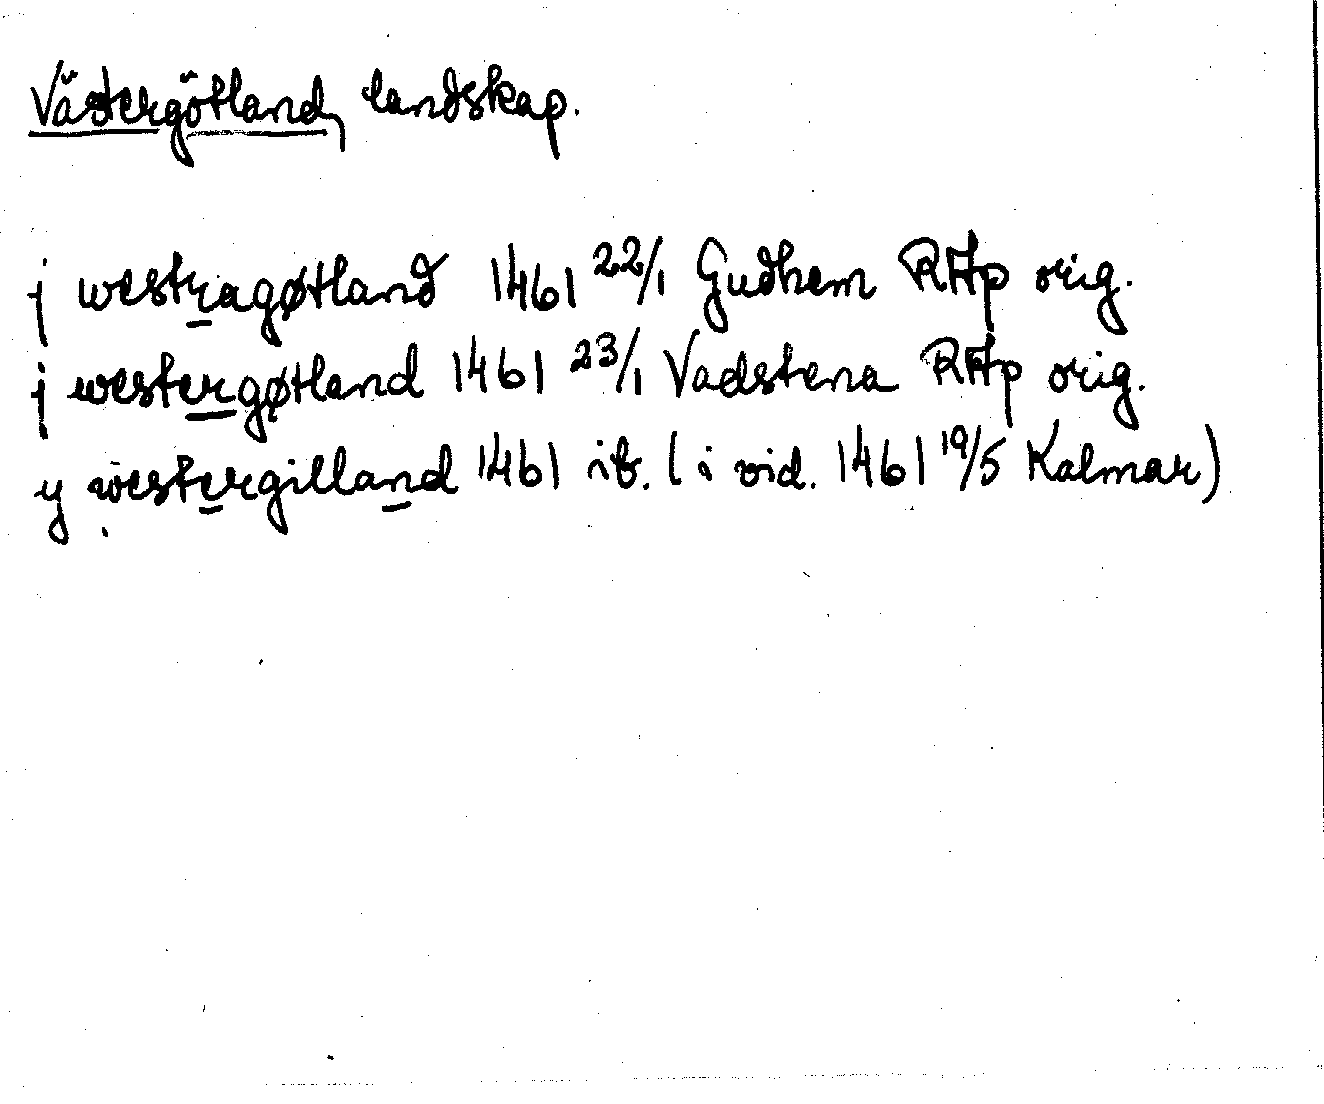 Västergötland, landskap.
j westragøtland 1461 22/1 Gudhem RAp orig.
j westergøtland 1461 23/1 Vadstena RAp orig.
y westergilland 1461 ib. (i vid. 1461 19/5 Kalmar)